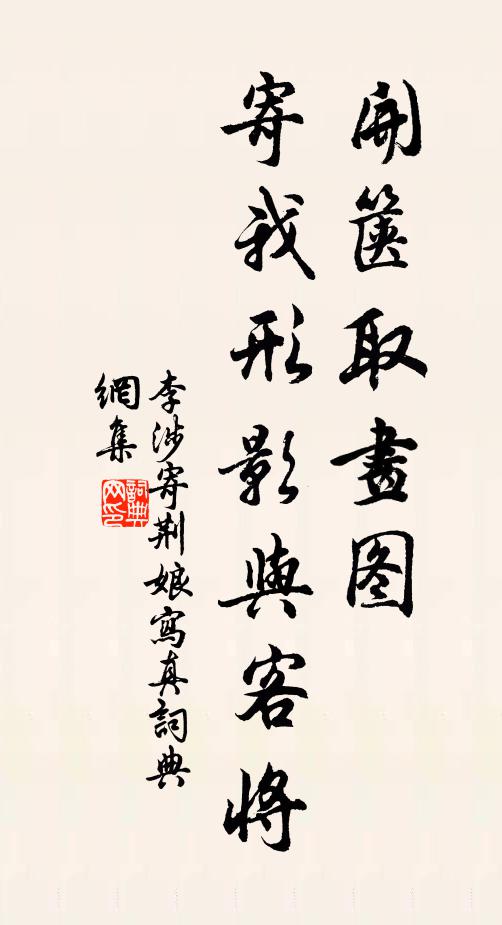 開篋取畫图
寄我形影與客將
李涉寄荆娘寫真詞典
網集
詞典
网印